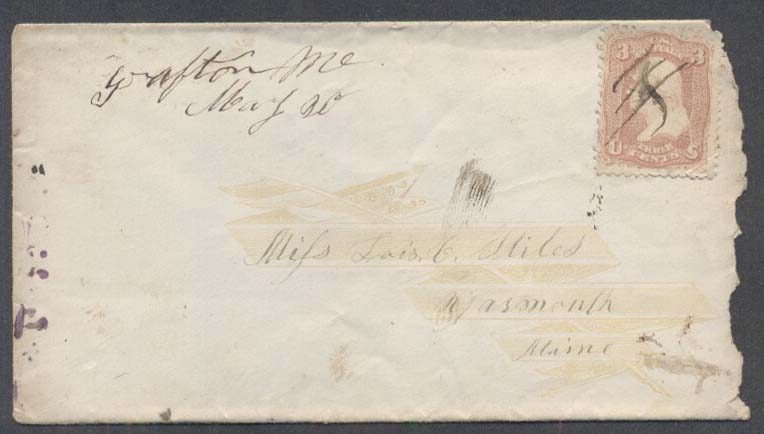 Grafton Me
May 20
3 3
THREE
U CENTS S
Miss Lois. C. Stiles
Yarmouth
Maine